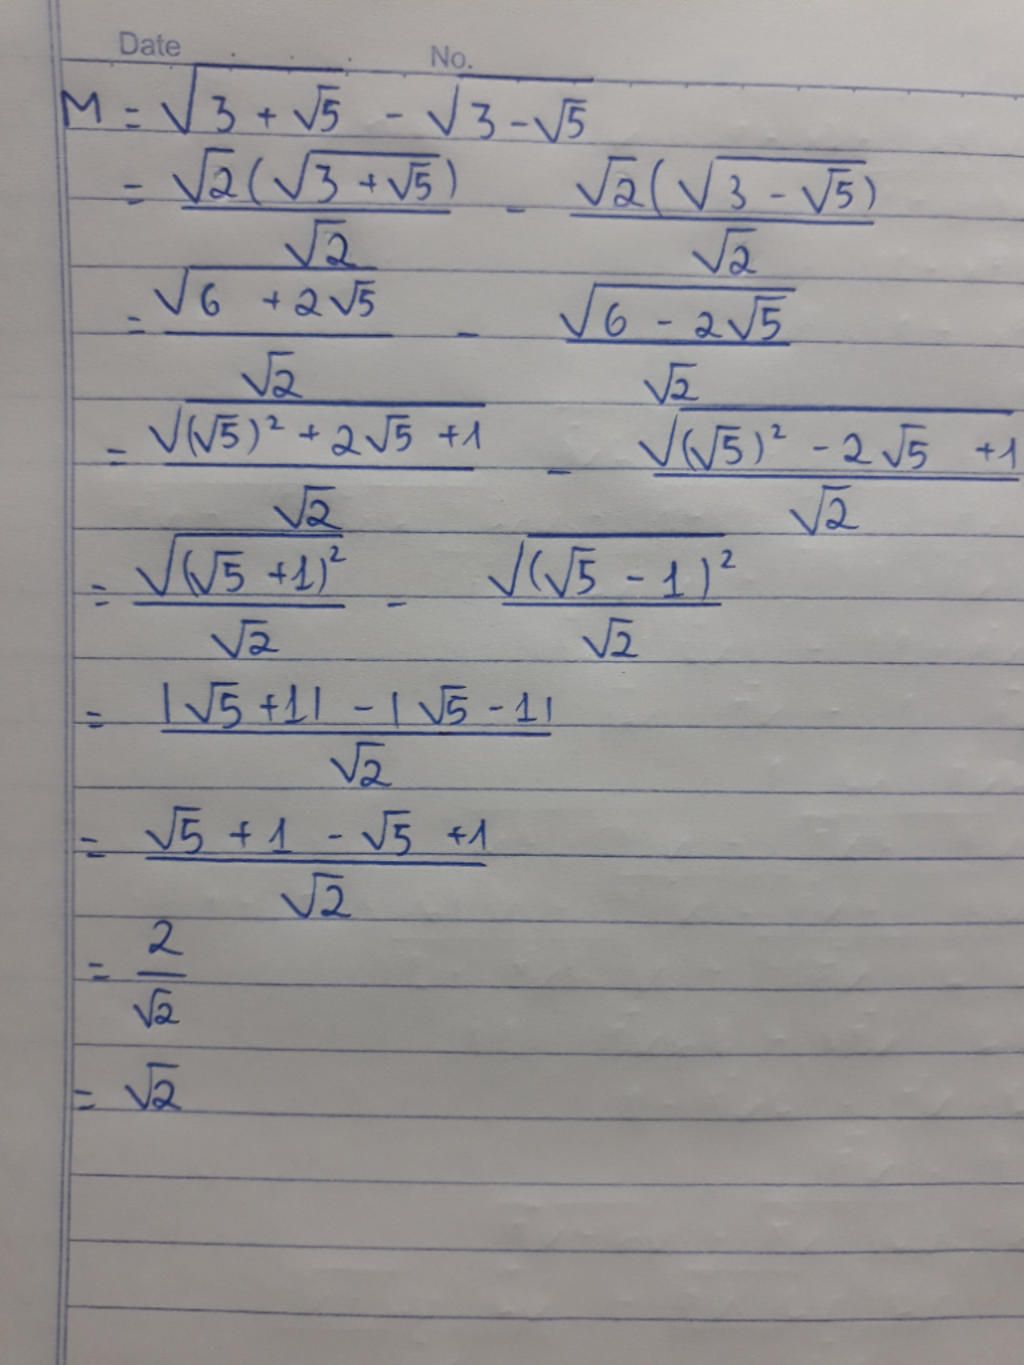 Date No.
M = √(3 + √5) - √(3 - √5)
= √2(√(3 + √5))/√2 - √2(√(3 - √5))/√2
= √(6 + 2√5)/√2 - √(6 - 2√5)/√2
= √((√5)² + 2√5 + 1)/√2 - √((√5)² - 2√5 + 1)/√2
= √((√5 + 1)²)/√2 - √((√5 - 1)²)/√2
= (|√5 + 1| - |√5 - 1|)/√2
= (√5 + 1 - √5 + 1)/√2
= 2/√2
= √2